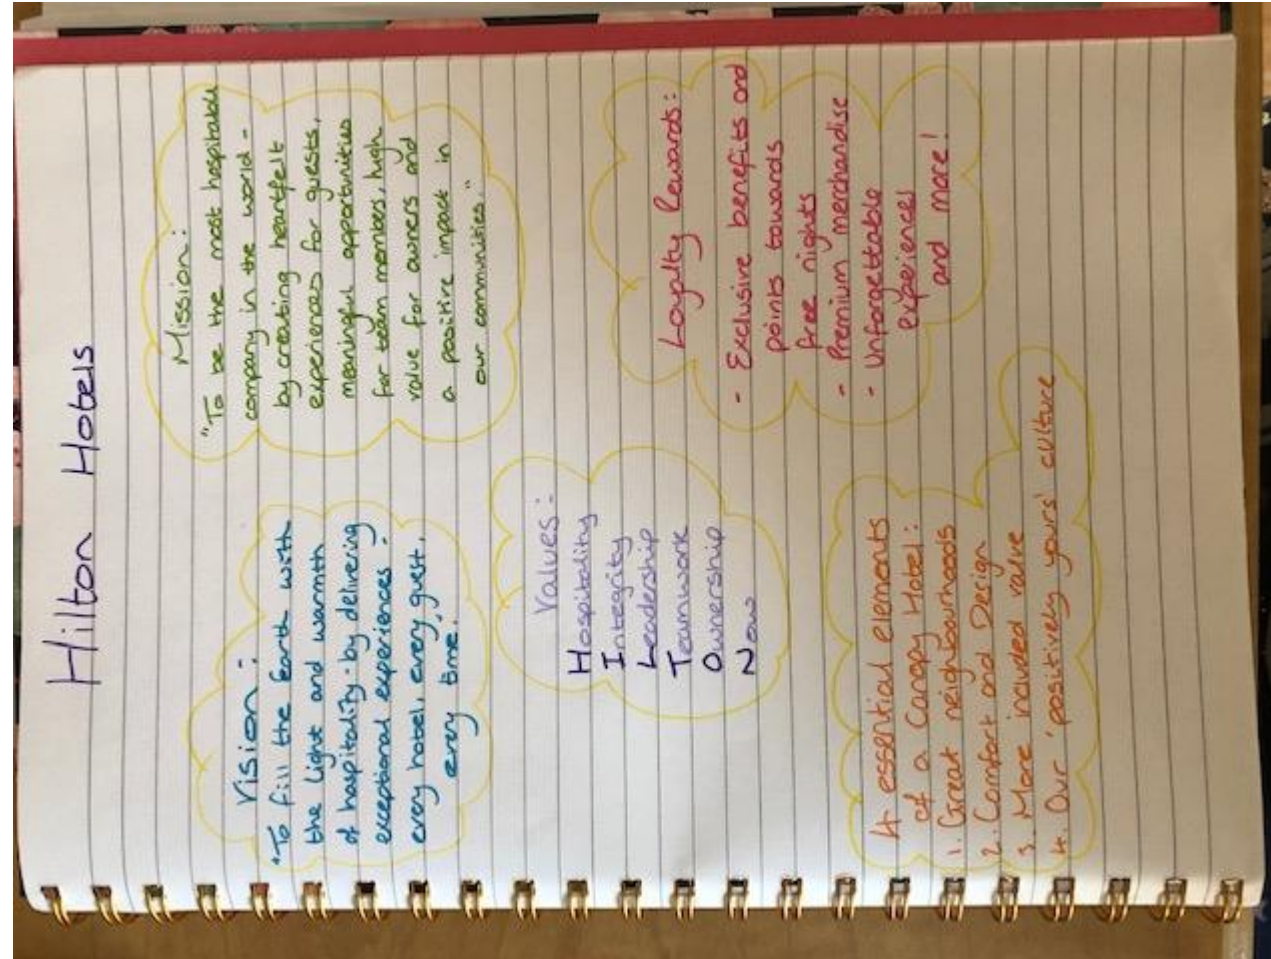 Hilton Hotels
Vision:
"To fill the Earth with
the light and warmth
of hospitality - by delivering
exceptional experiences -
every hotel, every guest,
every time."
Mission:
"To be the most hospitable
company in the world -
by creating heartfelt
experiences for guests,
meaningful opportunities
for team members, high
value for owners and
a positive impact in
our communities."
Values:
Hospitality
Integrity
Leadership
Teamwork
Ownership
Now
Loyalty Rewards:
- Exclusive benefits and
points towards
free nights
- Premium merchandise
- Unforgettable
experiences
and more!
4 essential elements
of a Canopy Hotel:
1. Great neighbourhoods
2. Comfort and Design
3. More included value
4. Our 'positively yours' culture